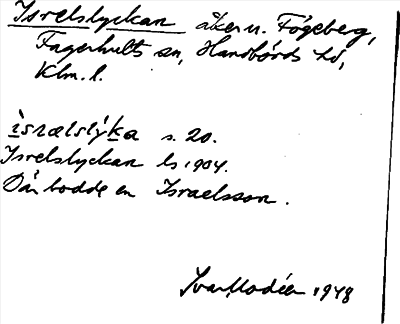 Isrelslyckan åker u. Fögeberg,
Fagerhults sn, Handbörds hd,
Klm. l.
ìsrælslýka s. 20.
Isrelslyckan ls 1904.
Där bodde en Israelsson.
Ivar Modéer 1948